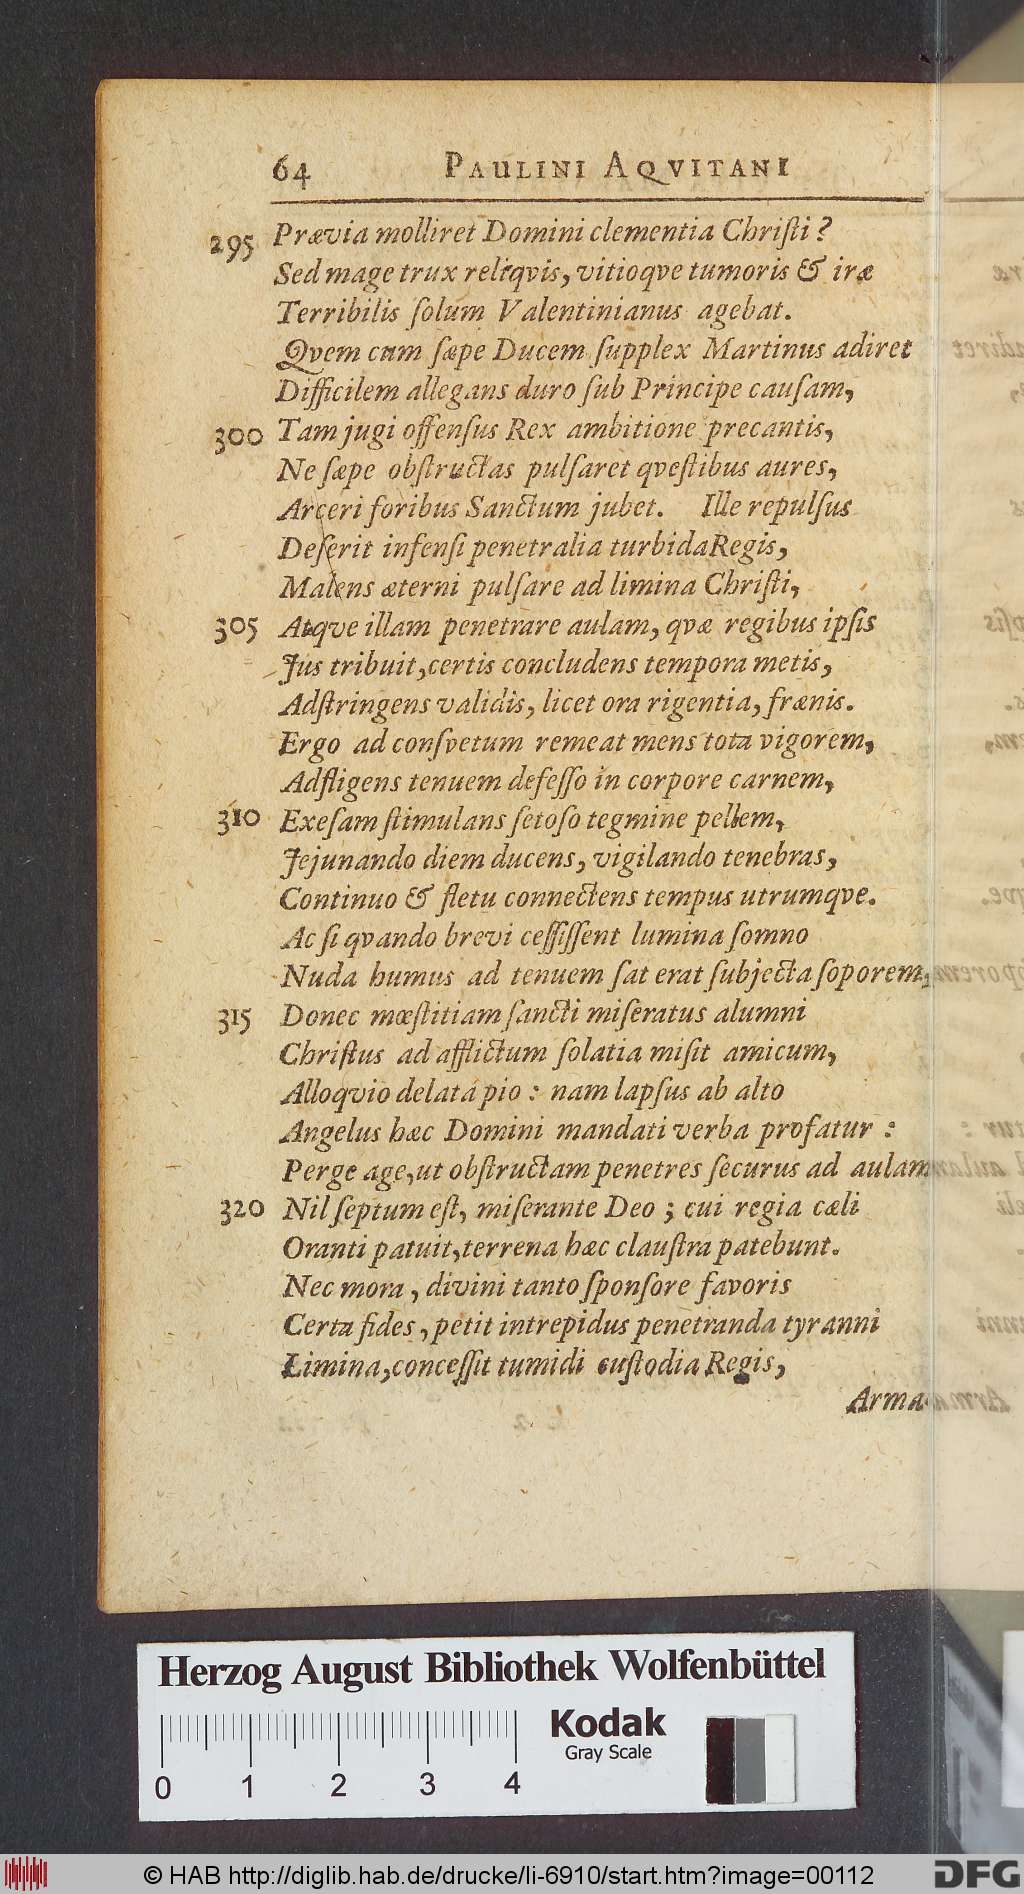 64 PAULINI AQVITANI
295 Prævia molliret Domini clementia Chriſti?
Sed mage trux reliqvis, vitioqve tumoris & iræ
Terribilis ſolum Valentinianus agebat.
Qvem cum ſæpe Ducem ſupplex Martinus adiret
Difficilem allegans duro ſub Principe cauſam,
300 Tam jugi offenſus Rex ambitione precantis,
Ne ſæpe obſtructas pulſaret qveſtibus aures,
Arceri foribus Sanctum jubet. Ille repulſus
Deſerit infenſi penetralia turbida Regis,
Malens æterni pulſare ad limina Chriſti,
305 Atqve illam penetrare aulam, qvæ regibus ipſis
Jus tribuit, certis concludens tempora metis,
Adſtringens validis, licet ora rigentia, frænis.
Ergo ad conſvetum remeat mens tota vigorem,
Adfligens tenuem defeſſo in corpore carnem,
310 Exeſam ſtimulans ſetoſo tegmine pellem,
Jejunando diem ducens, vigilando tenebras,
Continuo & fletu connectens tempus utrumqve.
Ac ſi qvando brevi ceſſiſſent lumina ſomno
Nuda humus ad tenuem ſat erat ſubjecta ſoporem,
315 Donec mœſtitiam ſancti miſeratus alumni
Chriſtus ad afflictum ſolatia miſit amicum,
Alloqvio delata pio: nam lapſus ab alto
Angelus hæc Domini mandati verba profatur:
Perge age, ut obſtructam penetres ſecurus ad aulam
320 Nil ſeptum eſt, miſerante Deo; cui regia cæli
Oranti patuit, terrena hæc clauſtra patebunt.
Nec mora, divini tanto ſponſore favoris
Certa fides, petit intrepidus penetranda tyranni
Limina, conceſſit tumidi cuſtodia Regis,
Arma-
Herzog August Bibliothek Wolfenbüttel
Kodak
Gray Scale
0 1 2 3 4
© HAB http://diglib.hab.de/drucke/li-6910/start.htm?image=00112
DFG